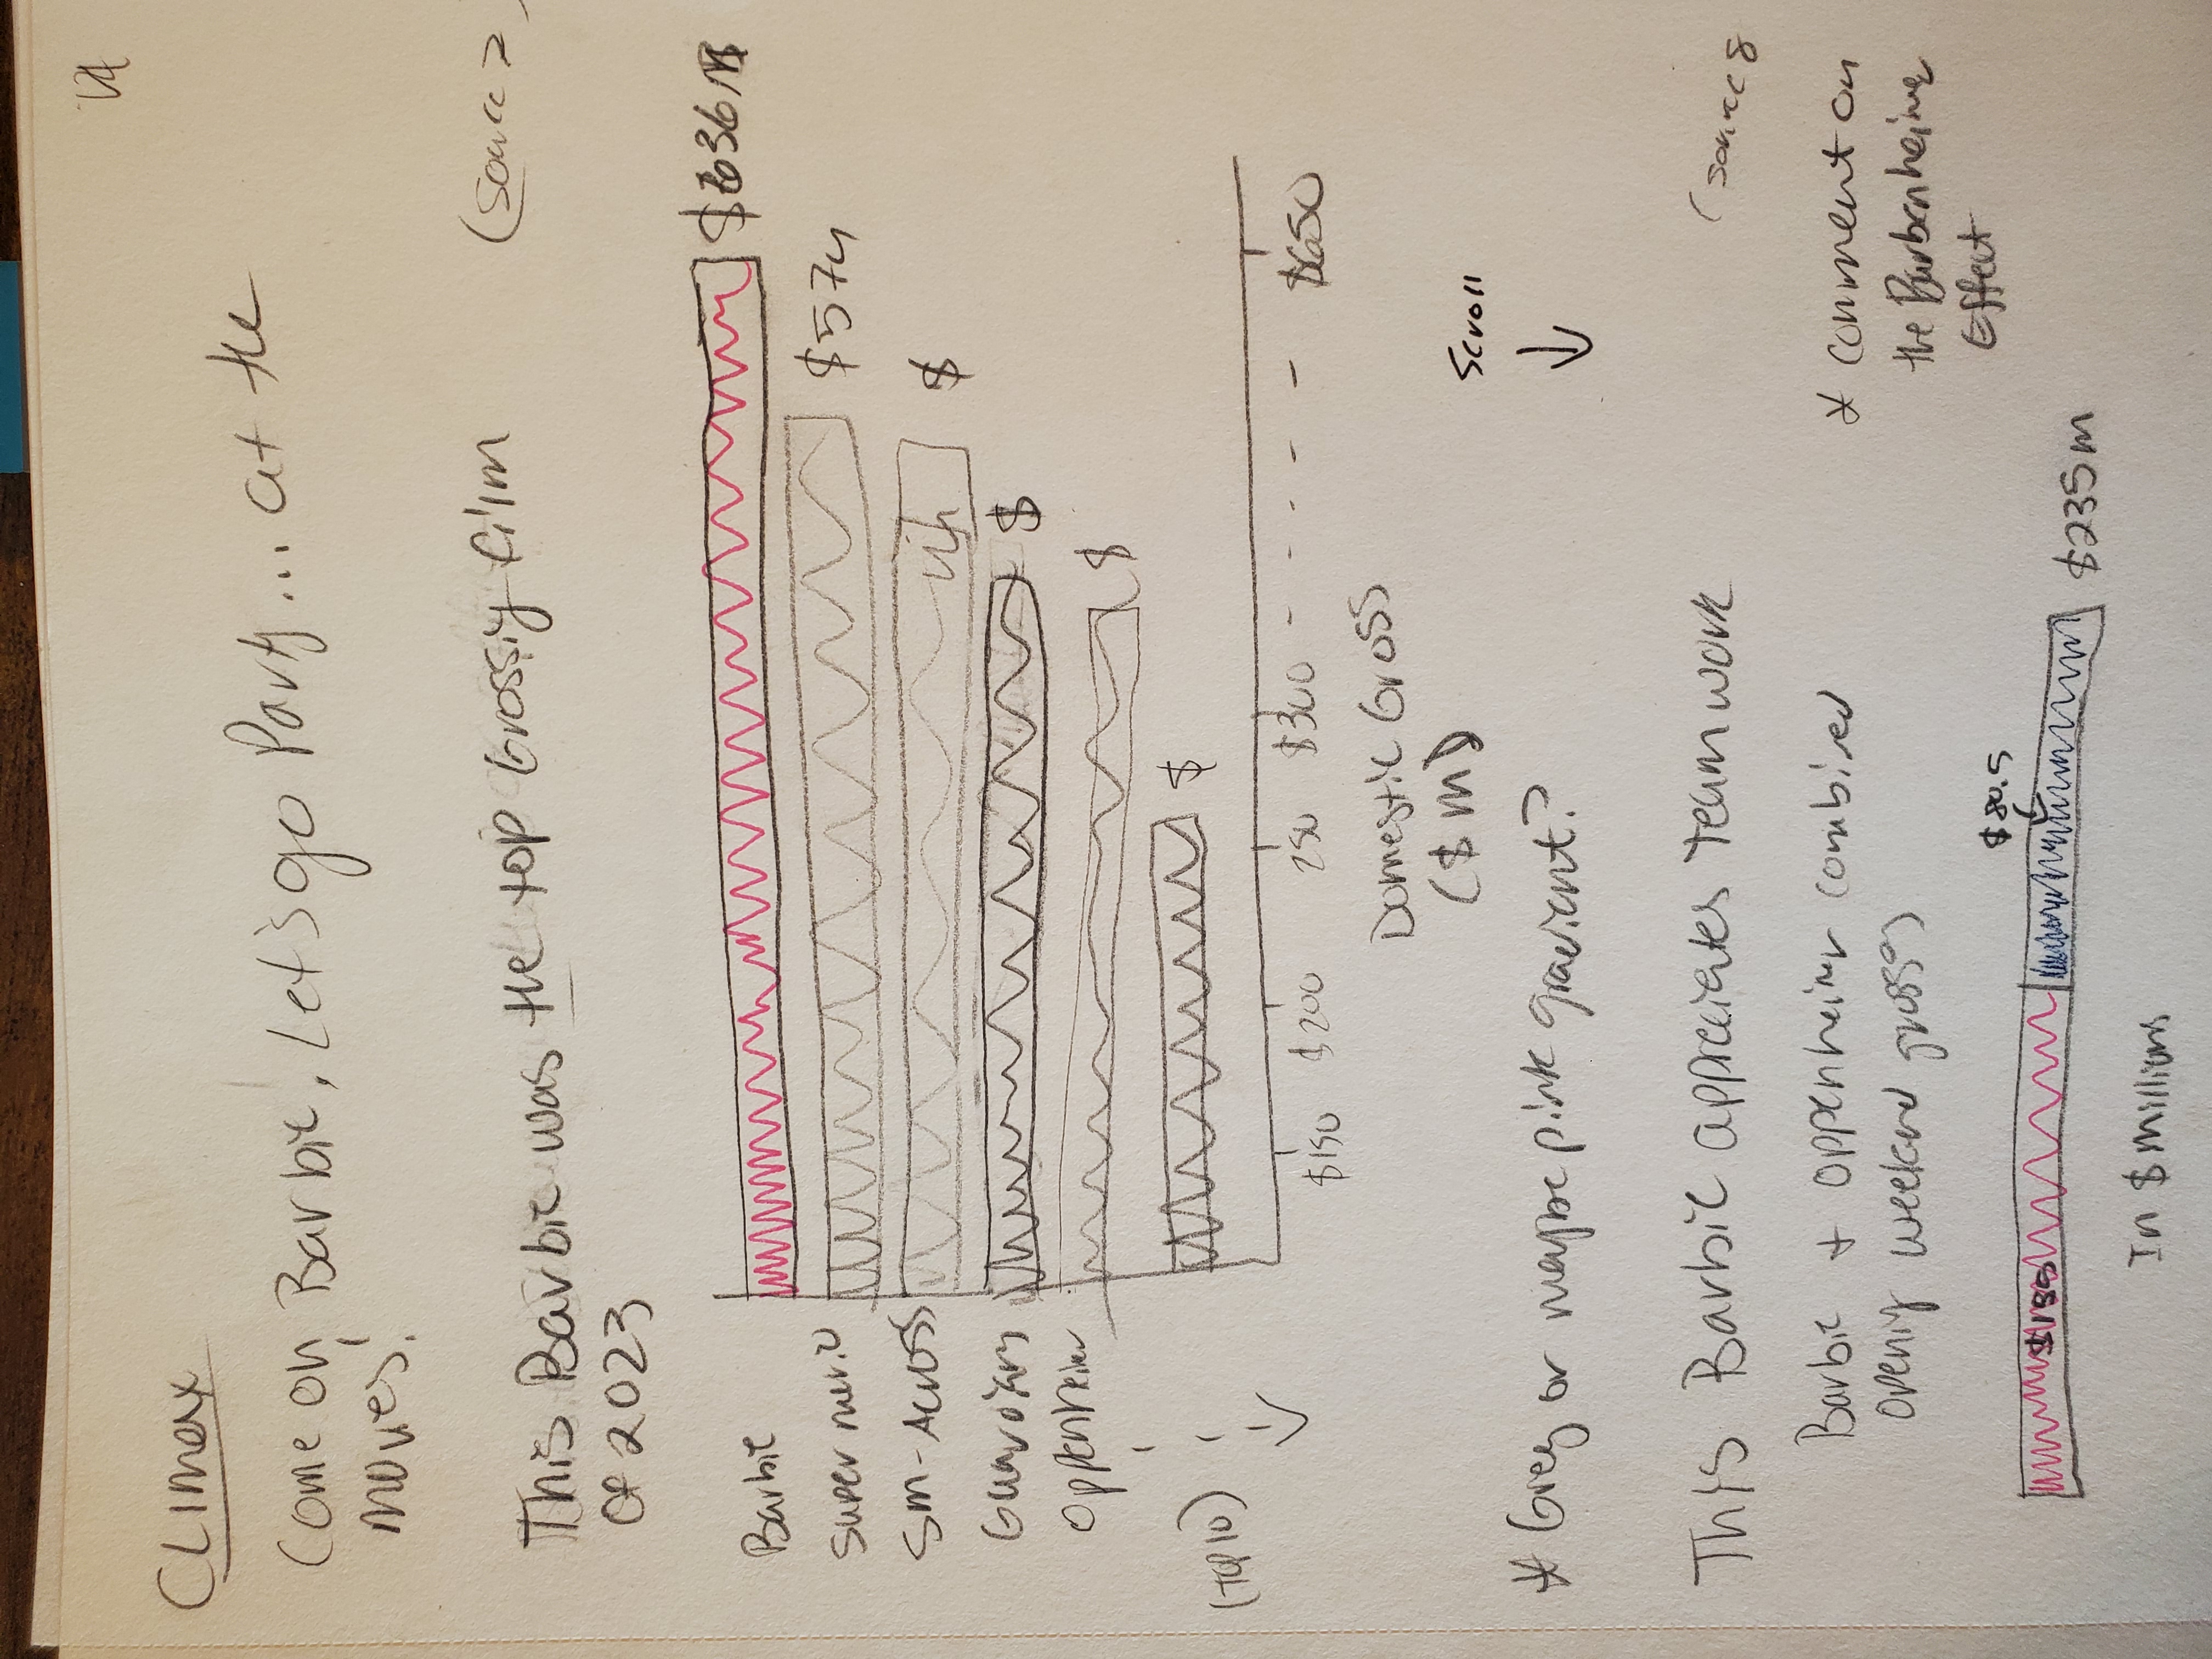 CLimax
Come on Barbie, Let's go Party... at the
movies!
This Barbie was the top Grossig film
(source 2)
of 2023
Barbie
$636M
Super mario
$574
SM-Across
$
Guardians
$
Oppenheimer
$
(top 10)
$
$150 $200 250 $300 - - - - - $650
Domestic Gross
($ M)
Scroll
* Grey or maybe pink gradient?
This Barbie appreciates teamwork
(source 8
Barbie + Oppenheimer combined
opening weekend grosses
* comment on
the Barbenheimer
Effect
$80.5
$155
$235m
In $ millions